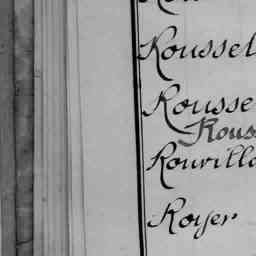 Roussel
Rousse
Rous
Rouvill
Royer